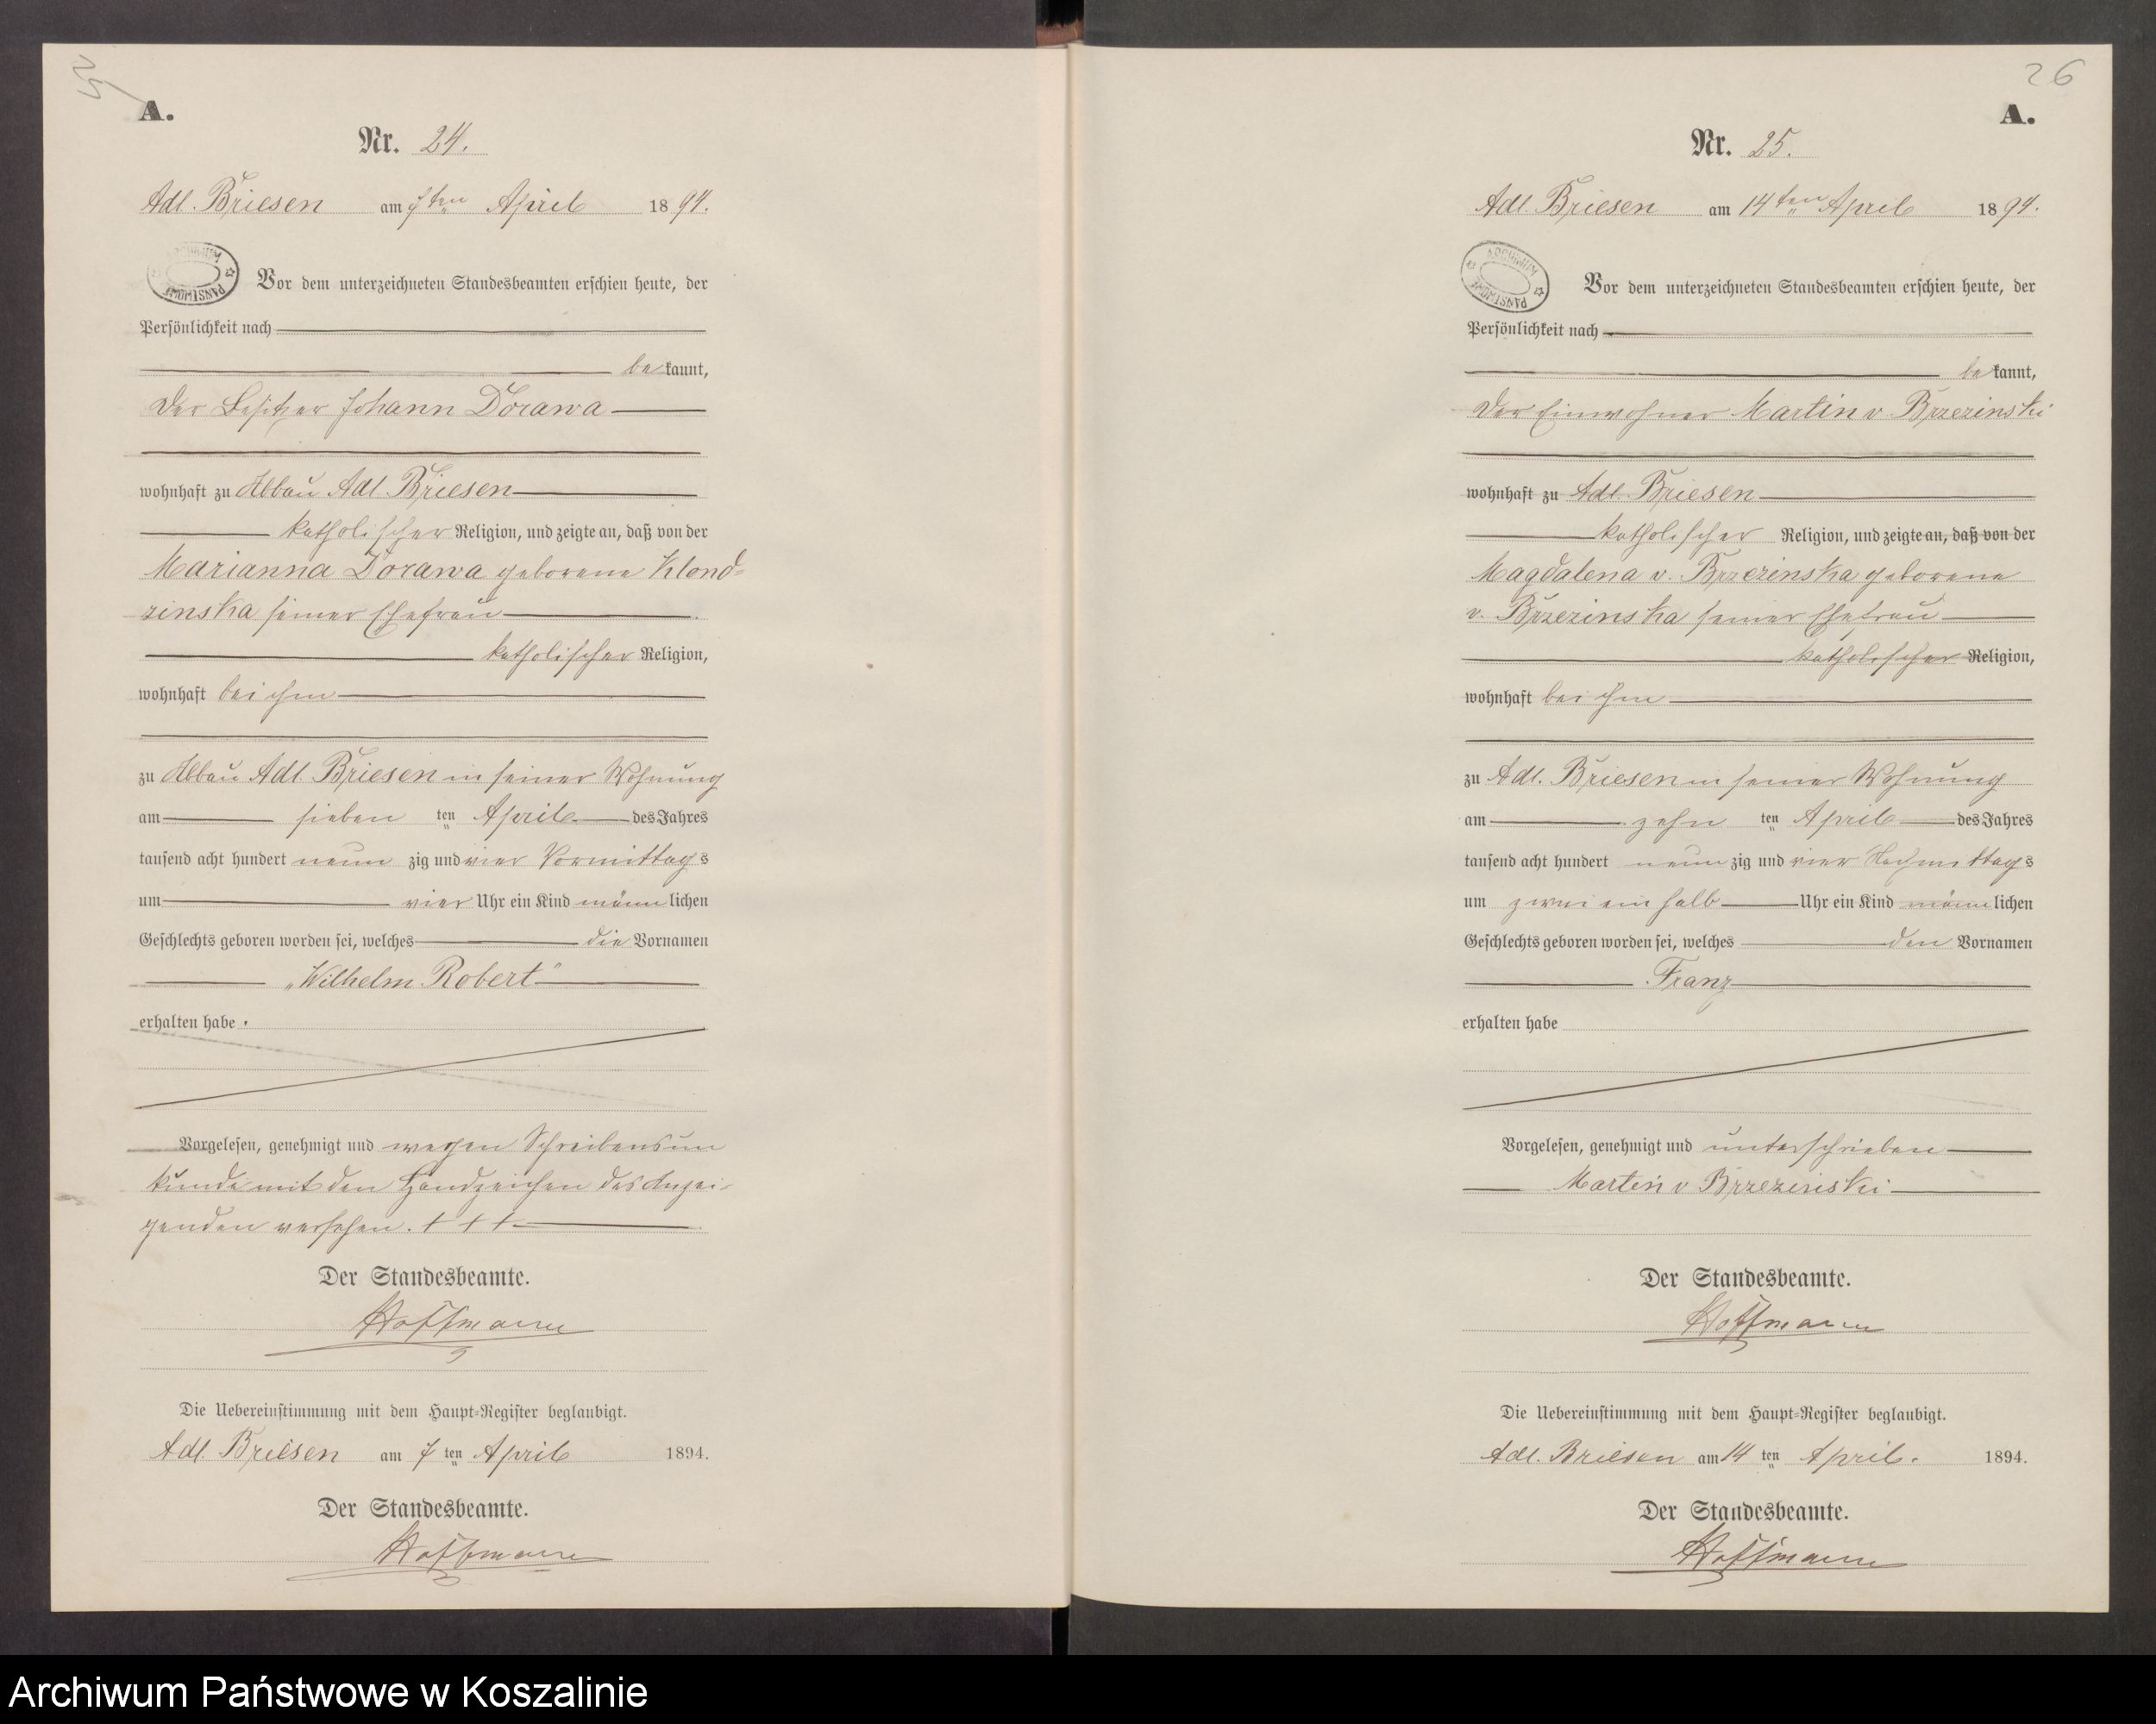 A.
Nr. 24.
Adl. Briesen am 7ten April 1894.
ARCHIWUM PAŃSTWOWE
Vor dem unterzeichneten Standesbeamten erschien heute, der
Persönlichkeit nach
bekannt,
der Besitzer Johann Dorawa
wohnhaft zu Abbau Adl. Briesen
katholischer Religion, und zeigte an, daß von der
Marianna Dorawa geborene Klond-
zinska seiner Ehefrau
katholischer Religion,
wohnhaft bei ihm
zu Abbau Adl. Briesen in seiner Wohnung
am sieben ten April des Jahres
tausend acht hundert neun zig und vier Vormittags
um vier Uhr ein Kind männlichen
Geschlechts geboren worden sei, welches die Vornamen
„Wilhelm Robert"
erhalten habe.
Vorgelesen, genehmigt und wegen Schreibensun
kunde mit den Handzeichen des Anzei-
genden versehen. + + +
Der Standesbeamte.
Hoffmann
Die Uebereinstimmung mit dem Haupt-Register beglaubigt.
Adl. Briesen am 7 ten April 1894.
Der Standesbeamte.
Hoffmann
26
A.
Nr. 25.
Adl. Briesen am 14ten April 1894.
ARCHIWUM PAŃSTWOWE
Vor dem unterzeichneten Standesbeamten erschien heute, der
Persönlichkeit nach
bekannt,
der Einwohner Martin v. Brzezinski
wohnhaft zu Adl. Briesen
katholischer Religion, und zeigte an, daß von der
Magdalena v. Brzezinska geborene
v. Brzezinska seiner Ehefrau
katholischer Religion,
wohnhaft bei ihm
zu Adl. Briesen in seiner Wohnung
am zehn ten April des Jahres
tausend acht hundert neun zig und vier Nachmittags
um zwei ein halb Uhr ein Kind männlichen
Geschlechts geboren worden sei, welches den Vornamen
Franz
erhalten habe
Vorgelesen, genehmigt und unterschrieben
Martin v Brzezinski
Der Standesbeamte.
Hoffmann
Die Uebereinstimmung mit dem Haupt-Register beglaubigt.
Adl. Briesen am 14 ten April. 1894.
Der Standesbeamte.
Hoffmann
Archiwum Państwowe w Koszalinie